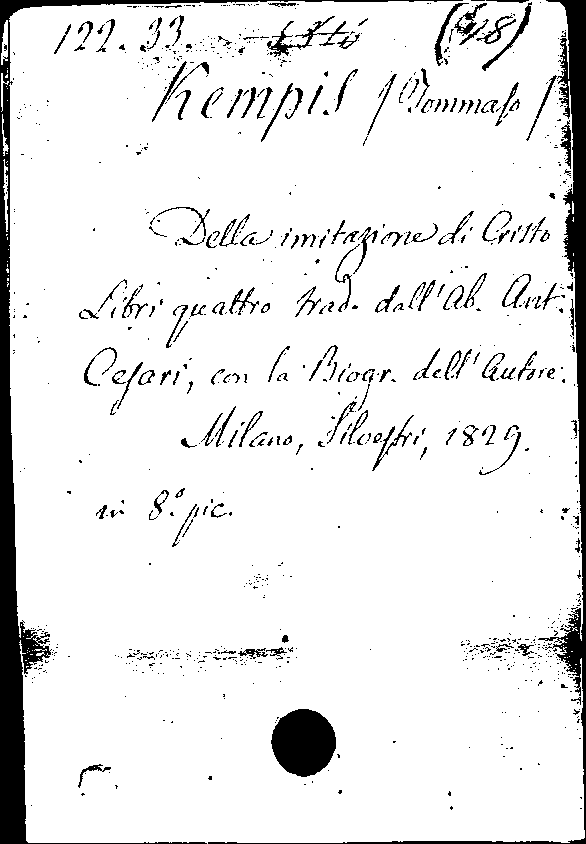 122. 33.
Kempis / Tommaso /
Della imitazione di Cristo
Libri quattro trad. dall' Ab. Ant.
Cesari, con la Biogr. dell' Autore.
Milano, Silvestri, 1829.
in 8.° pic.